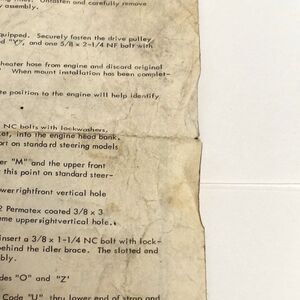 Unfasten and carefully remove
assembly.
equipped. Securely fasten the drive pulley
"Y", and one 5/8 x 2-1/4 NF bolt with
heater hose from engine and discard original
" When mount installation has been complet-
te position to the engine will help identify
NC bolts with lockwashers,
ket, into the engine head bank.
ort on standard steering models
er "M" and the upper front
this point on standard steer-
ower rightfront vertical hole
2 Permatex coated 3/8 x 3
ame uppervertical hole.
insert a 3/8 x 1-1/4 NC bolt with lock-
behind the idler brace. The slotted and
bly.
des "O" and "Z"
Code "U" thru lower end of strap and